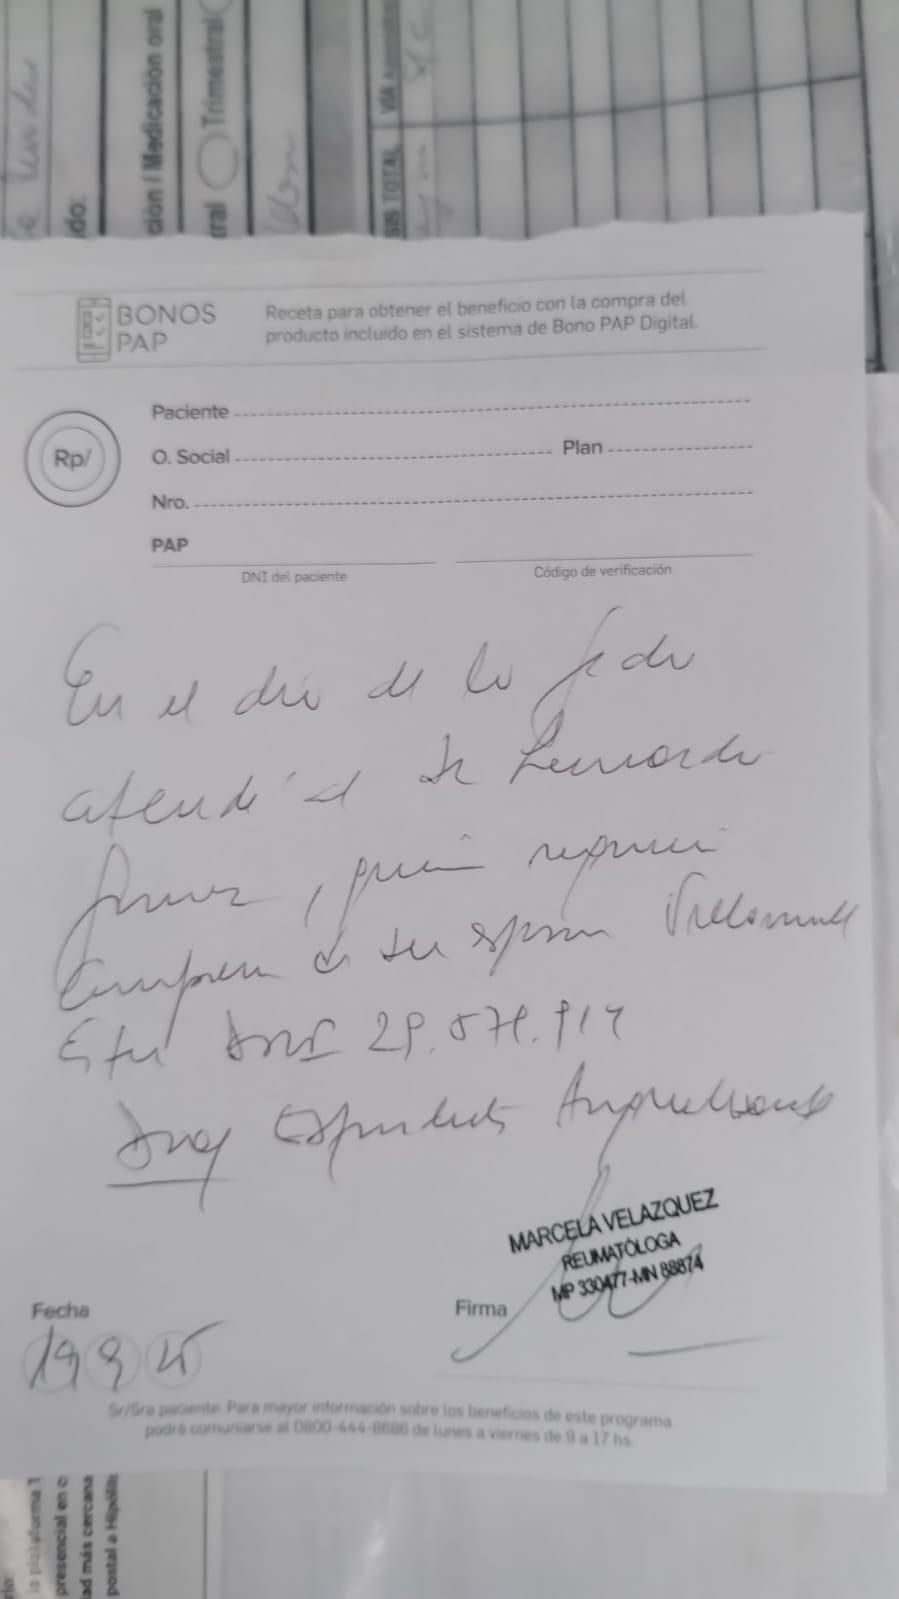 ción / Medicación oral
Trimestral
SIS TOTAL
VÍA
BONOS
PAP
Receta para obtener el beneficio con la compra del
producto incluido en el sistema de Bono PAP Digital.
Rp/
Paciente
O. Social
Plan
Nro.
PAP
DNI del paciente
Código de verificación
En el día de la fecha
atendí al Sr Leonardo
, quien
de su esposa
DNI
Dx Espondilitis Anquilosante
MARCELA VELAZQUEZ
REUMATÓLOGA
MP 330477-MN 88874
Fecha
Firma
19 9 25
Sr/Sra paciente: Para mayor información sobre los beneficios de este programa
podrá comuniarse al 0800-444-8686 de lunes a viernes de 9 a 17 hs.
la plataforma
presencial en
ad más cercana
postal a